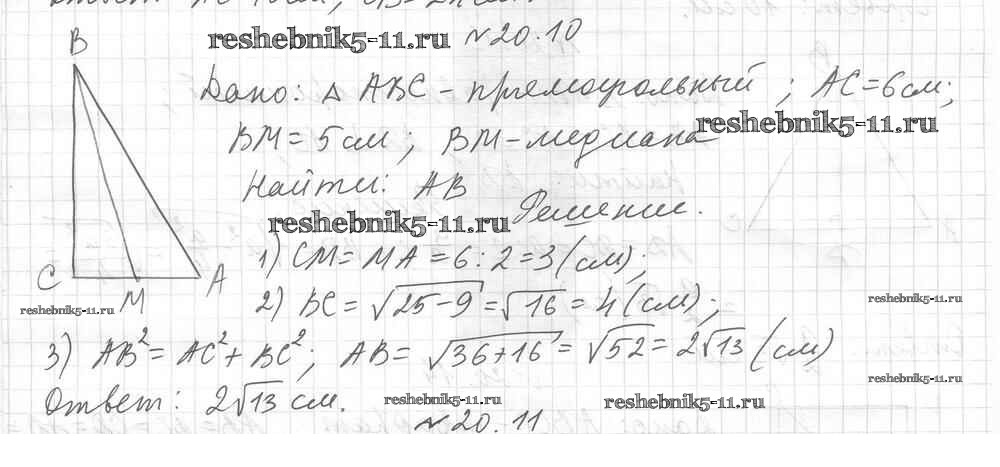 reshebnik5-11.ru № 20.10
B
Дано: Δ ABC - прямоугольный ; AC = 6 см;
reshebnik5-11.ru
BM = 5 см ; BM - медиана
Найти: AB
reshebnik5-11.ru Решение.
1) CM = MA = 6 : 2 = 3 (см);
C M A
reshebnik5-11.ru
2) BC = √25-9 = √16 = 4 (см);
reshebnik5-11.ru
3) AB² = AC² + BC² ; AB = √36+16 = √52 = 2√13 (см)
reshebnik5-11.ru
Ответ: 2√13 см.
reshebnik5-11.ru reshebnik5-11.ru
№ 20.11